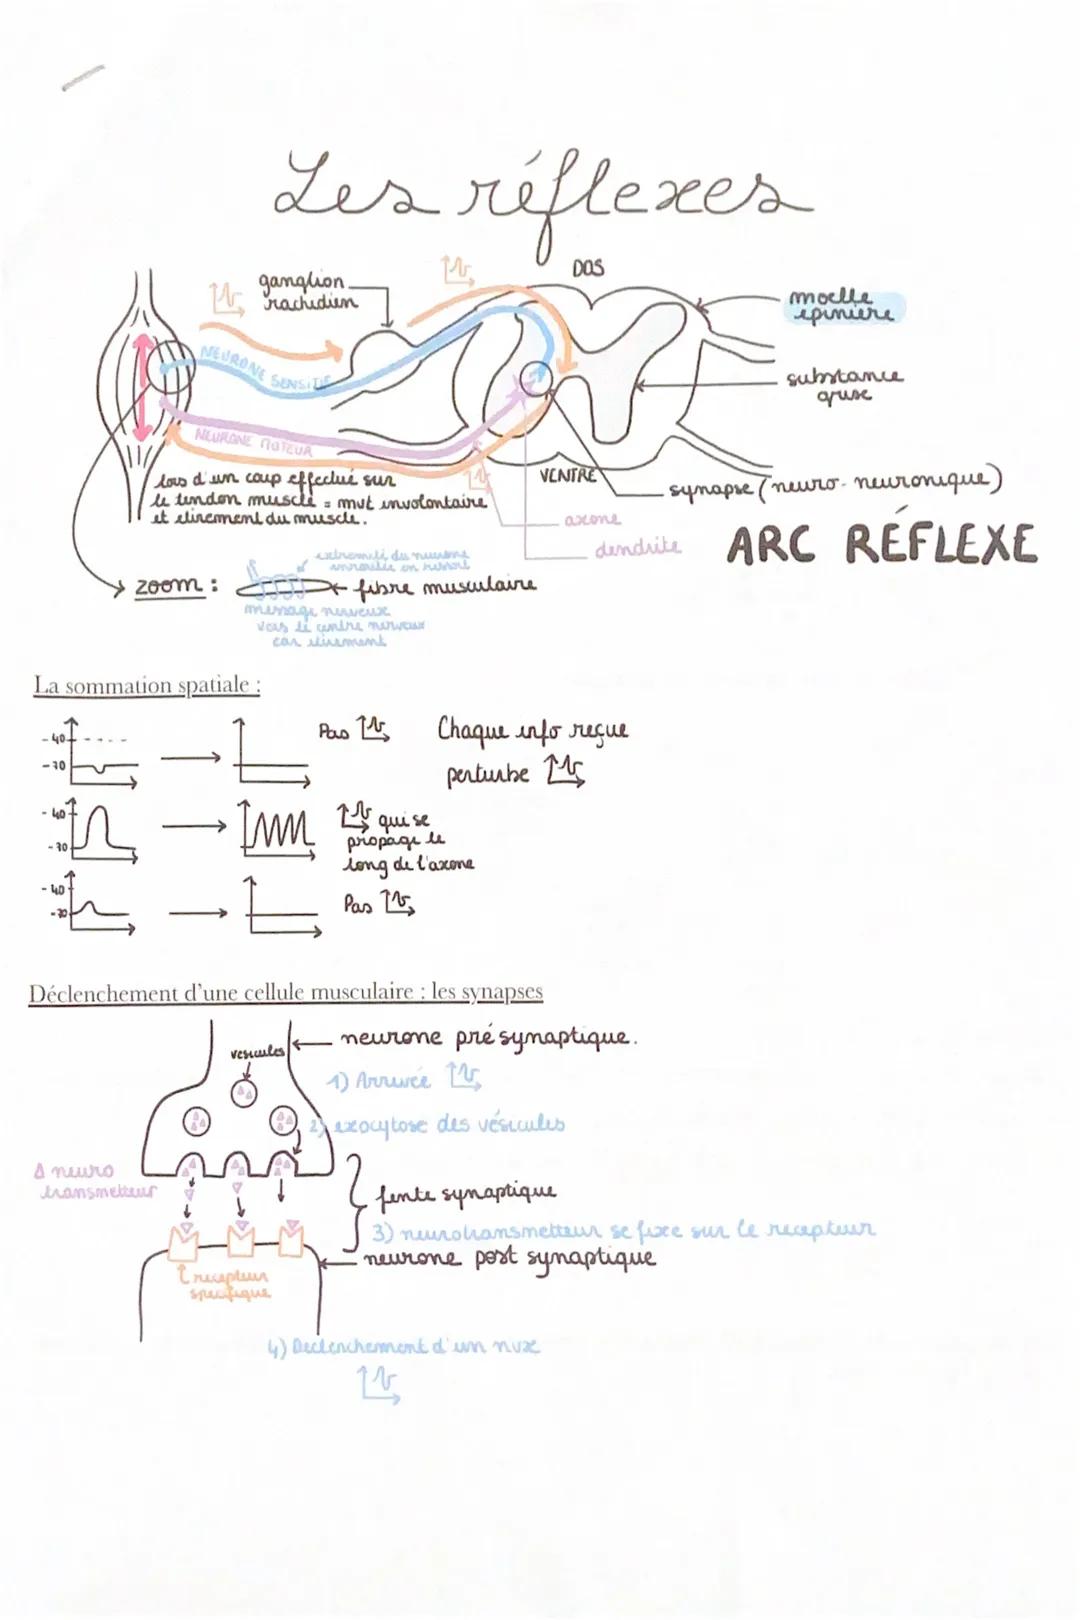 Les réflexes
DOS
ganglion
rachidien
moelle
épinière
NEURONE SENSITIF
substance
grise
NEURONE MOTEUR
VENTRE
lors d'un coup effectué sur
le tendon muscle = mvt involontaire
et étirement du muscle.
synapse (neuro-neuronique)
axone
dendrite
ARC RÉFLEXE
extrémité du neurone
enroulée en ressort
zoom :
fibre musculaire
message nerveux
vers le centre nerveux
car étirement
La sommation spatiale :
-40
-70
Pas
Chaque info reçue
perturbe
-40
-70
qui se
propage le
long de l'axone
-40
-70
Pas
Déclenchement d'une cellule musculaire : les synapses
vésicules
neurone pré synaptique.
1) Arrivée
2) exocytose des vésicules
Δ neuro
transmetteur
fente synaptique
3) neurotransmetteur se fixe sur le récepteur
neurone post synaptique
récepteur
spécifique
4) Declenchement d'un nvx